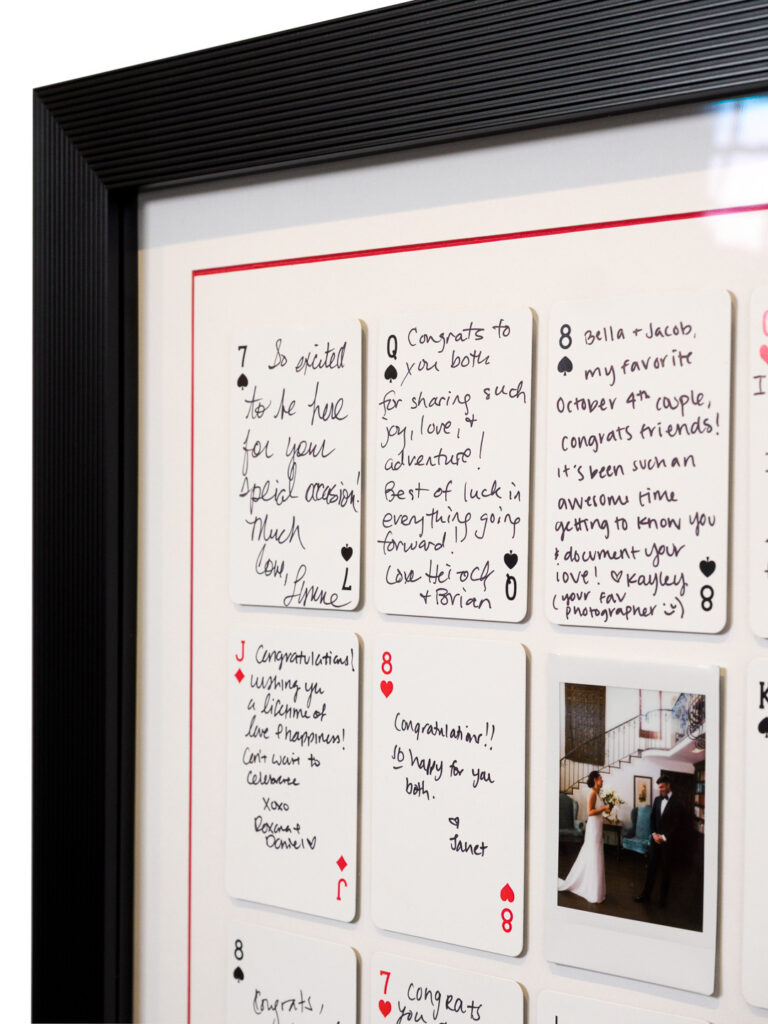 7
So excited
to be here
for your
special occasion!
Much
love,
7
Q
Congrats to
you both
for sharing such
joy, love, +
adventure!
Best of luck in
everything going
forward!
Love
+ Brian
Q
8
Bella + Jacob,
my favorite
October 4th couple,
congrats friends!
it's been such an
awesome time
getting to know you
+ document your
love! ♡ Kayley
(your fav
photographer :))
8
J
Congratulations!
Wishing you
a lifetime of
love & happiness!
Can't wait to
celebrate
xoxo
Roxana +
Daniel ♡
J
8
Congratulations!!
so happy for you
both.
♡
Janet
8
K
8
Congrats,
7
congrats
you
I